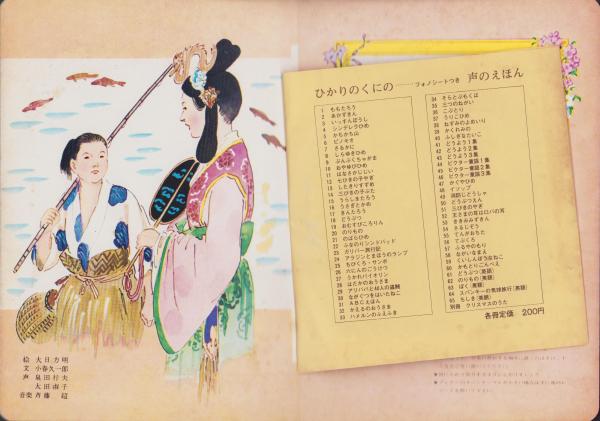 ひかりのくにの――フォノシートつき 声のえほん
1 ももたろう
2 あかずきん
3 いっすんぼうし
4 シンデレラひめ
5 かちかち山
6 ピノキオ
7 さるかに
8 しらゆきひめ
9 ぶんぶくちゃがま
10 おやゆびひめ
11 はなさかじじい
12 七ひきの子やぎ
13 したきりすずめ
14 三びきの子ぶた
15 うらしまたろう
16 うさぎとかめ
17 きんたろう
18 どうぶつ
19 おむすびころりん
20 のりもの
21 のばらひめ
22 ふなのりシンドバッド
23 ガリバー旅行記
24 アラジンとまほうのランプ
25 ちびくろ・サンボ
26 六にんのごうけつ
27 うかれバイオリン
28 はだかのおうさま
29 アリババと40人の盗賊
30 ながぐつをはいたねこ
31 ABCえほん
32 かえるのおうさま
33 ハメルンのふえふき
34 そらとぶもくば
35 三つのねがい
36 こぶとり
37 うりこひめ
38 ねずみのよめいり
39 かくれみの
40 ふしぎなたいこ
41 どうよう1集
42 どうよう2集
43 どうよう3集
44 ビクター童謡1集
45 ビクター童謡2集
46 ビクター童謡3集
47 かぐやひめ
48 イソップ
49 消防じどうしゃ
50 どうぶつえん
51 三びきのやぎ
52 王さまの耳はロバの耳
53 ききみみずきん
54 さるじぞう
55 てんがおちた
56 てぶくろ
57 ふるやのもり
58 ながいなまえ
59 くいしんぼうなねこ
60 かもとりごんべえ
61 どうぶつ(英語)
62 のりもの(英語)
63 ぼく(英語)
64 スパンキーの気球旅行(英語)
65 もしき(英語)
別冊 クリスマスのうた
各冊定価 200円
絵 大日方明
文 小春久一郎
声 泉田行夫
太田淑子
音楽 斉藤超